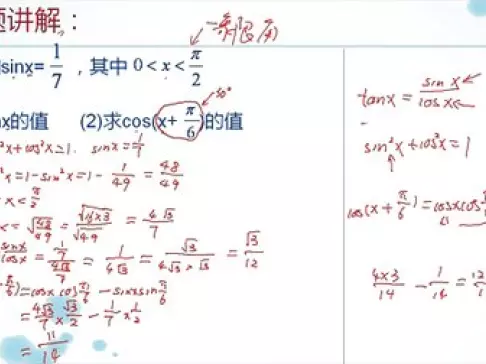 题讲解：
一象限角
知sinx= 1/7，其中 0 < x < π/2
x的值 (2)求cos(x+ π/6)的值
30°
²x+cos²x=1. sinx=1/7
²x=1-sin²x=1- 1/49 = 48/49
x< π/2
x = √(48/49) = √(16×3)/√49 = 4√3/7
sinx/cosx = (1/7)/(4√3/7) = 1/(4√3) = √3/(4√3×√3) = √3/12
π/6)=cosx cos π/6 - sinx sin π/6
= 4√3/7 × √3/2 - 1/7 × 1/2
= 11/14
tanx = sinx/cosx
sin²x+cos²x=1
cos(x+ π/6)=cosxcos π/6
4×3/14 - 1/14 = 12